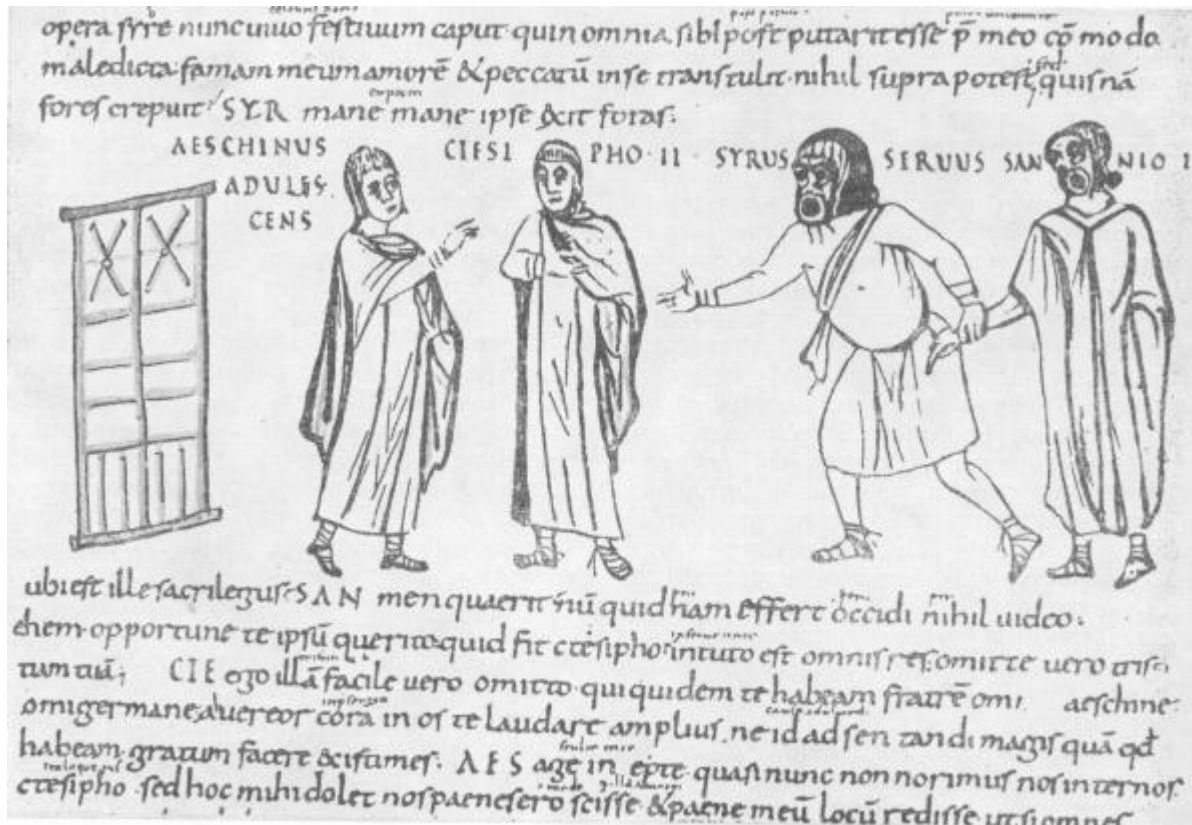 opera syre nunc uiuo festiuum caput quin omnia sibi post putarit esse p̄ meo cōmodo
maledicta famam meum amorē & peccatū in se transtulit nihil supra potest quis nā
fores crepuit SYR mane mane ipse exit foras
AESCHINUS CTESI PHO · II · SYRUS SERUUS SAN NIO I
ADULES
CENS
ubi est ille sacrilegus SAN men quaerit nū quid nam effert occidi nihil uideo
ehem opportune te ipsū querito quid fit ctesipho in tuto est omnis res omitte vero tristi
tiam tuā CTE ego illā facile vero omitto qui quidem te habeam fratrē o mi aeschine
o mi germane a uereor corā in os te laudare amplius ne id ad sen tandi magis quā qđ
habeam gratum facere existimes AES age in epte quasi nunc non norimus nos inter nos
ctesipho sed hoc mihi dolet nos paene sero scisse & paene in eū locū redisse ut si omnes